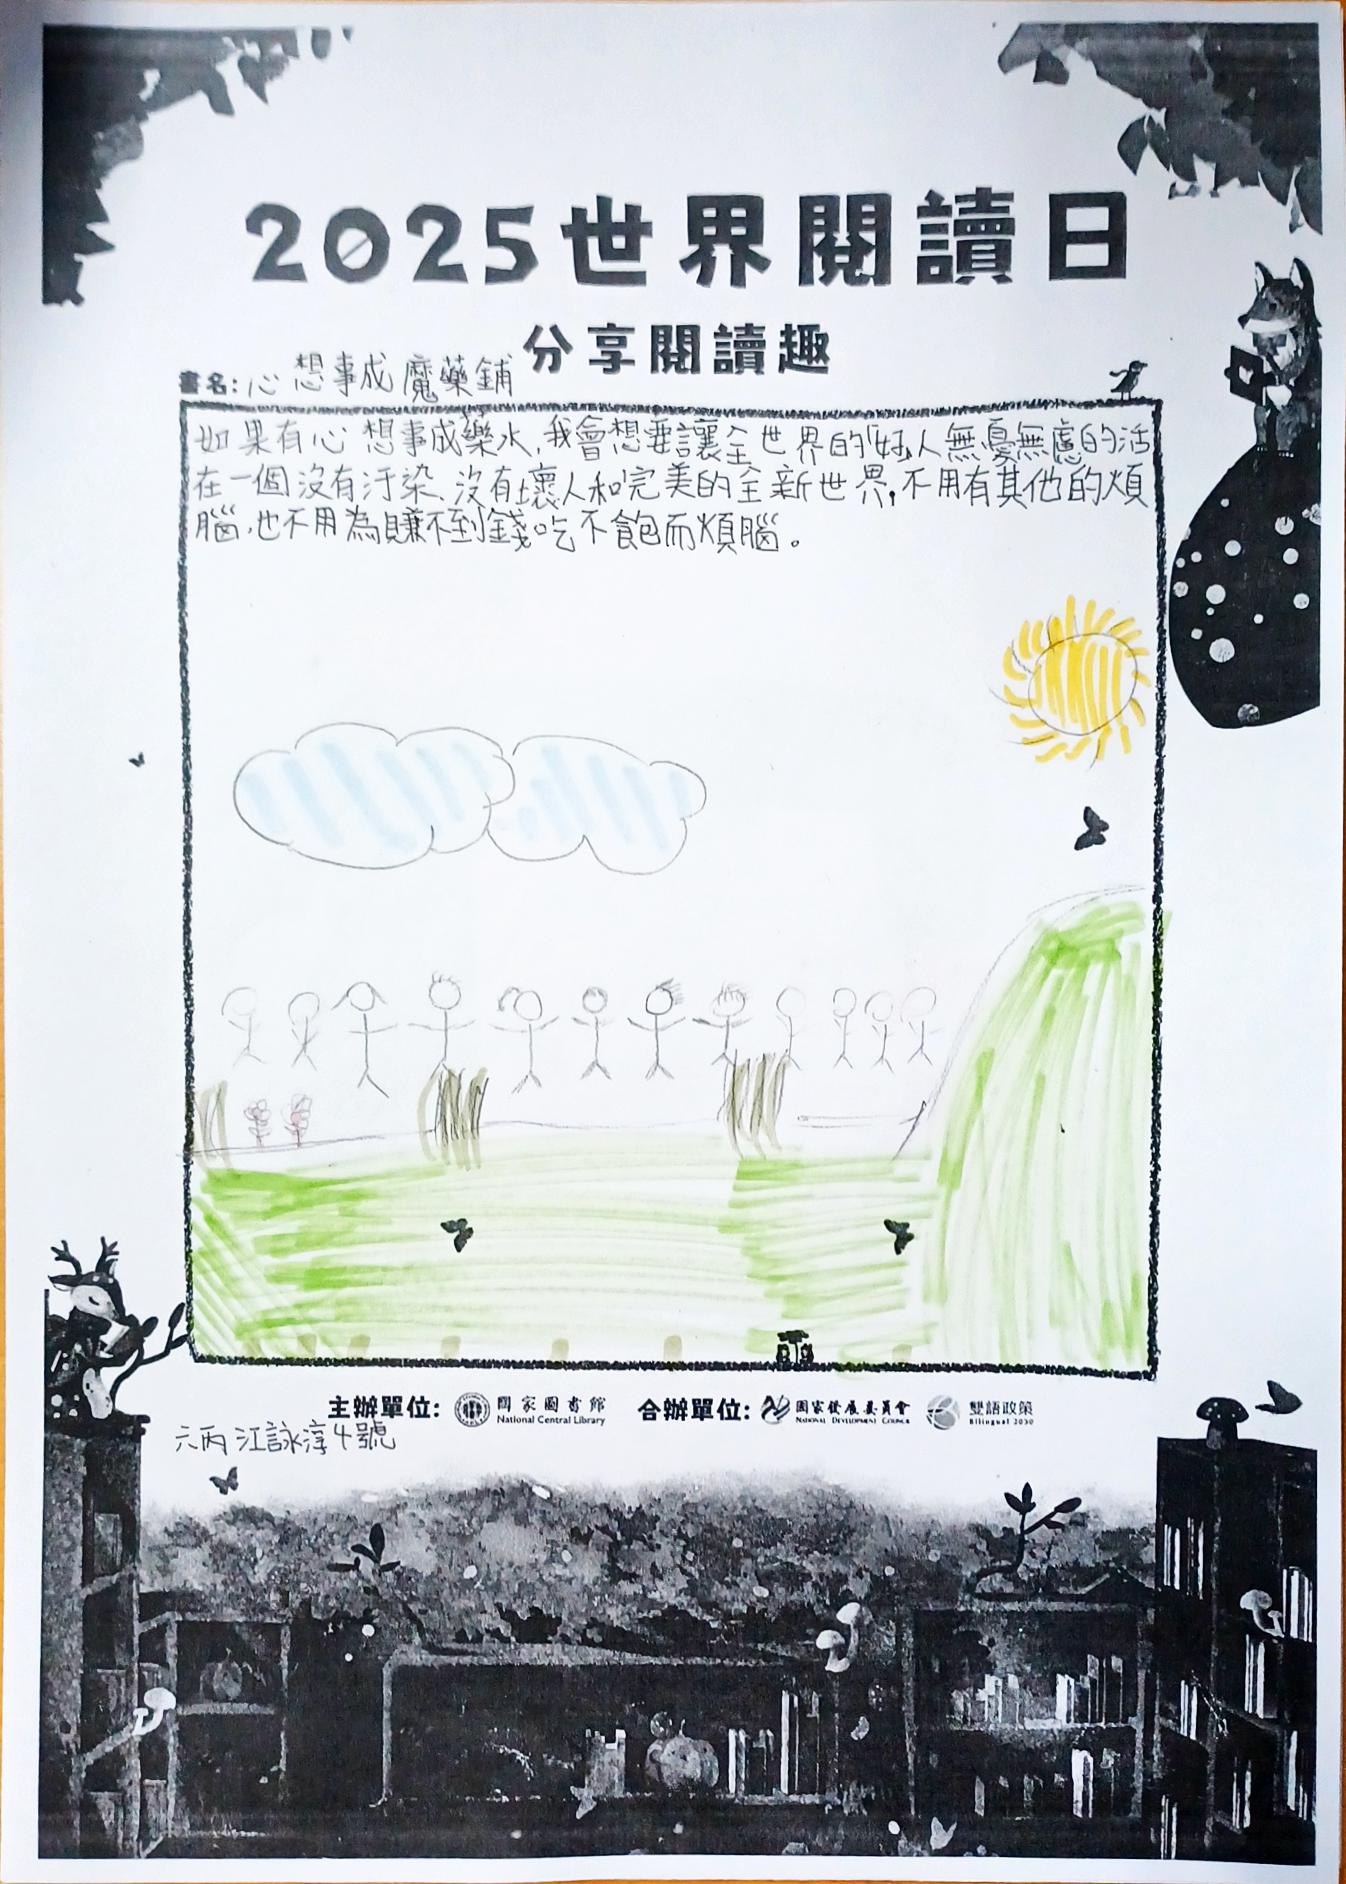 2025世界閱讀日
分享閱讀趣
書名：心想事成魔藥鋪
如果有心想事成藥水，我會想要讓全世界的「好」人無憂無慮的活
在一個沒有汙染、沒有壞人和完美的全新世界，不用有其他的煩
腦，也不用為賺不到錢吃不飽而煩腦。
主辦單位： 國家圖書館 National Central Library 合辦單位： 國家發展委員會 National Development Council 雙語政策 Bilingual 2030
六丙 江詠淳 4號